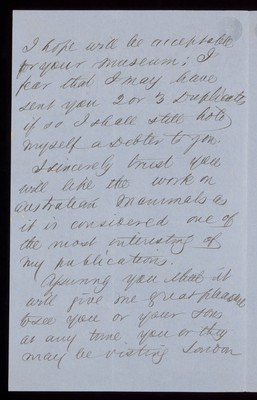 I hope will be acceptable
for your museum; I
fear that I may have
sent you 2 or 3 Duplicates
if so I shall still hold
myself a Debtor to you.
I sincerely trust you
will like the work on
Australian Mammals as
it is considered one of
the most interesting of
my publications.
Assuring you that it
will give me great pleasure
to see you or your sons
at any time you or they
may be visiting London